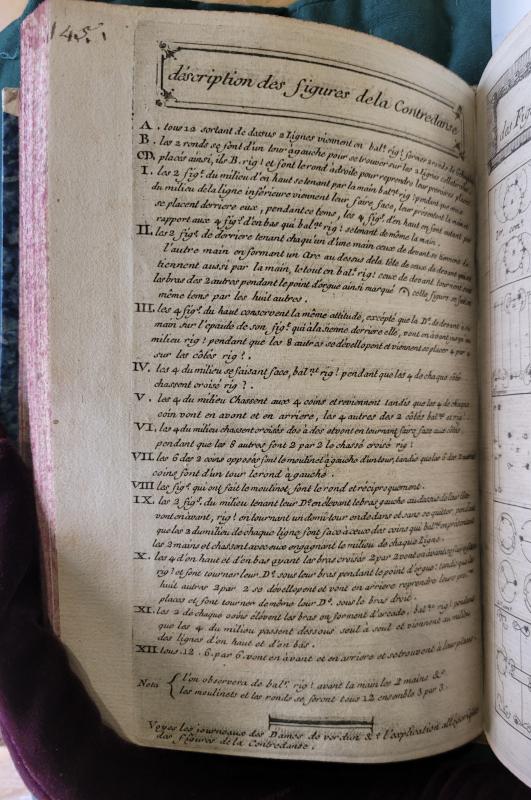 145.
déscription des figures de la Contredanse
A. tous 12 sortant de dessus 2 Lignes viennent en bal.^t rig! former 2 ronds
B. les 2 ronds se font d'un tour à gauche pour se trouver sur les 2 lignes
CD. placés ainsi, ils B. rig! et font le rond a droite pour reprendre leur premiere place
I. les 2 fig.^s du milieu d'en haut se tenant par la main bal.^nt rig! pendant que
du milieu de la ligne inférieure viennent leur faire face, leur présentent la main et
se placent derriere eux, pendant ce tems, les 4 fig.^s d'en haut font autant par
rapport aux 4 fig.^s d'en bas qui bal.^nt rig! se tenant de même la main.
II. les 2 fig.^s de derriere tenant chaqu'un d'une main ceux de devant
l'autre main en formant un Arc au dessus de la tête de ceux de devant
tiennent aussi par la main, le tout en bal.^t rig! ceux de devant tournent sous
les bras des 2 autres pendant le point d'orgue ainsi marqué 𝄐 cette figure se fait en
même tems par les huit autres.
III. les 4 fig.^s du haut conservent la même attitude, excepté que la D.^e de devant a la
main sur l'epaule de son fig.^t qui à la sienne derriere elle, vont en avant
milieu rig! pendant que les 8 autres se dévellopent et viennent se placer 4 par 4
sur les côtés rig!.
IV. les 4 du milieu se faisant face, bal.^nt rig! pendant que les 4 de chaque côté
chassent croisé rig?.
V. les 4 du milieu Chassent aux 4 coins et reviennent tandis que les 4 de chaque
coin vont en avant et en arriere, les 4 autres des 2 côtés bal.^nt et rig!
VI. les 4 du milieu chassent croisés dos à dos et vont en tournant faire face aux côtés
pendant que les 8 autres font 2 par 2 le chassé croisé rig!
VII. les 6 des 2 coins opposés font le moulinet à gauche d'un tour, tandis que les 6 des 2 autres
coins font d'un tour le rond à gauche.
VIII les fig.^s qui ont fait le moulinet font le rond et réciproquement.
IX. les 2 fig.^s du milieu tenant leur D.^e en élevant le bras gauche au dessus de leur tête
vont en avant, rig! en tournant un demi tour en dedans et sans se quitter, pendant
que les 2 du milieu de chaque ligne font face à ceux des coins qui bal.^nt en présentant
les 2 mains et chassent avec eux en gagnant le milieu de chaque ligne.
X. les 4 d'en haut et d'en bas ayant les bras croisés 2 par 2 vont en avant
rig! et font tourner leur D.^e sous leur bras pendant le point d'orgue: tandis que les
huit autres 2 par 2 se dévellopent et vont en arriere reprendre leurs
places et font tourner de même leur D.^e sous le bras droit.
XI. les 2 de chaque coins élévent les bras en forment d'arcade, bal.^nt rig! pendant
que les 4 du milieu passent dessous seul à seul et viennent au milieu
des lignes d'en haut et d'en bas.
XII. tous 12. 6. par 6. vont en avant et en arriere et se trouvent à leur place.
Nota { l'on observera de bal.^r rig! avant la main les 2 mains &c
les moulinets et les ronds se feront tous 12 ensemble 3 par 3.
Voyes les journeaux des Dames de verdun &c l'explication allegorique
des figures de la Contredanse.